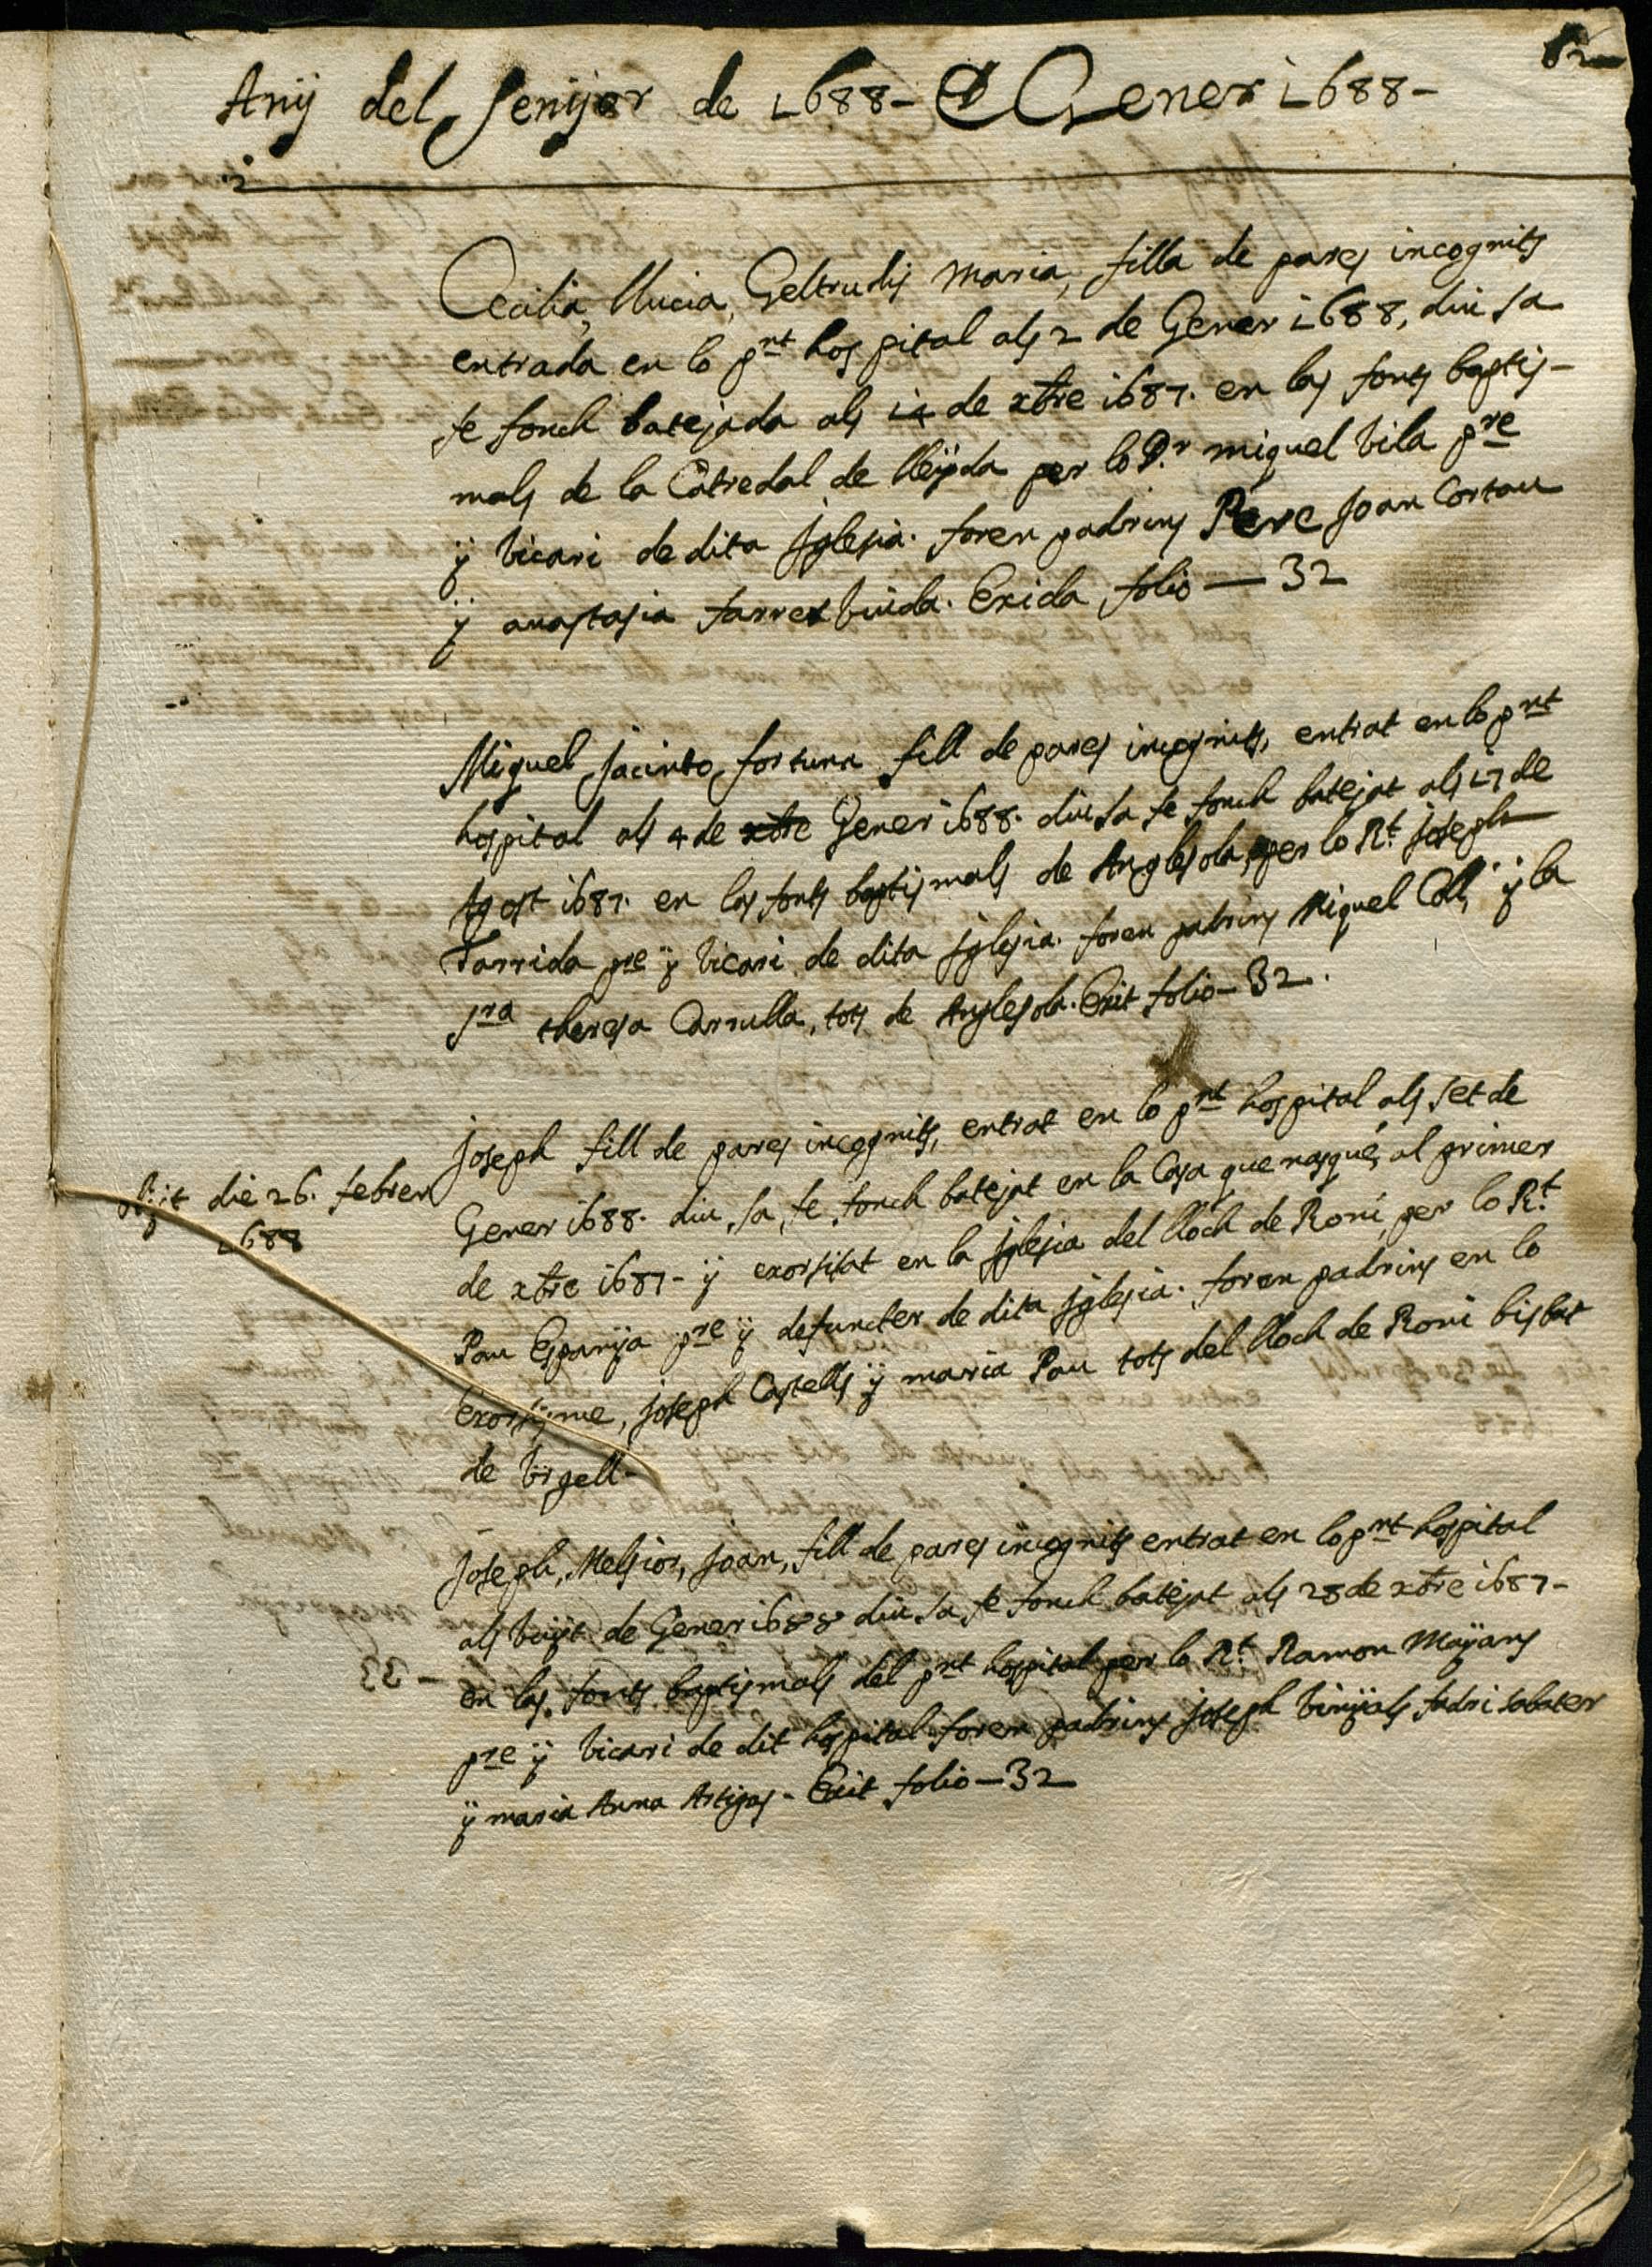 82
Anÿ del Senÿor de 1688 - Gener 1688 -
Cecilia, Llucia, Geltrudis Maria, filla de pares incognits
entrada en lo pnt hospital als 2 de Gener 1688, diu sa
fe fonch batejada als 14 de xbre 1687. en las fonts baptis-
mals de la Catredal de lleÿda per lo Dr. miquel Vila pre
ÿ Vicari de dita Iglesia. foren padrins Pere Joan Cortau
ÿ anastasia farrer Viuda. Exida folio — 32
Miquel Jacinto, fortuna fill de pares incognits, entrat en lo pnt
hospital als 4 de xbre Gener 1688. diu sa fe fonch batejat als 17 de
Agost 1687. en las fonts baptismals de Anglesola, per lo Rt. Joseph
Tarrida pre ÿ Vicari de dita Iglesia. foren padrins Miquel Coll, ÿ la
sra theresa Carrulla, tots de Anglesola. Exit folio - 32.
Joseph fill de pares incognits, entrat en lo pnt hospital als set de
Obijt die 26. febrer
1688
Gener 1688. diu sa fe fonch batejat en la Casa que nasqué, al primer
de xbre 1687 - ÿ exorsisat en la Iglesia del lloch de Roní, per lo Rt.
Pau Espanÿa pre ÿ defuncter de dita Iglesia. foren padrins en lo
Exorsisme, Joseph Castells ÿ maria Pau tots del lloch de Roní bisbat
de Vrgell -
Joseph, Melsior, Joan, fill de pares incognits entrat en lo pnt hospital
als Vuÿt de Gener 1688 diu sa fe fonch batejat als 28 de xbre 1687 -
en las fonts baptismals del pnt hospital per lo Rt. Ramon Maÿans
pre ÿ Vicari de dit hospital foren padrins Joseph Vinÿals fadri sabater
ÿ maria Anna Artigas - Exit folio — 32